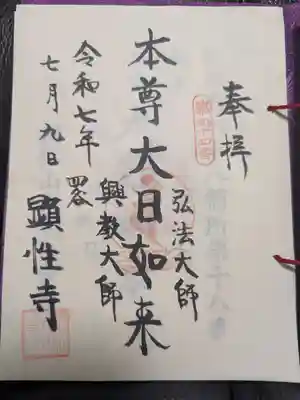 奉拝
弘法大師
本尊大日如来
興教大師
四谷
顕性寺
令和七年
七月九日